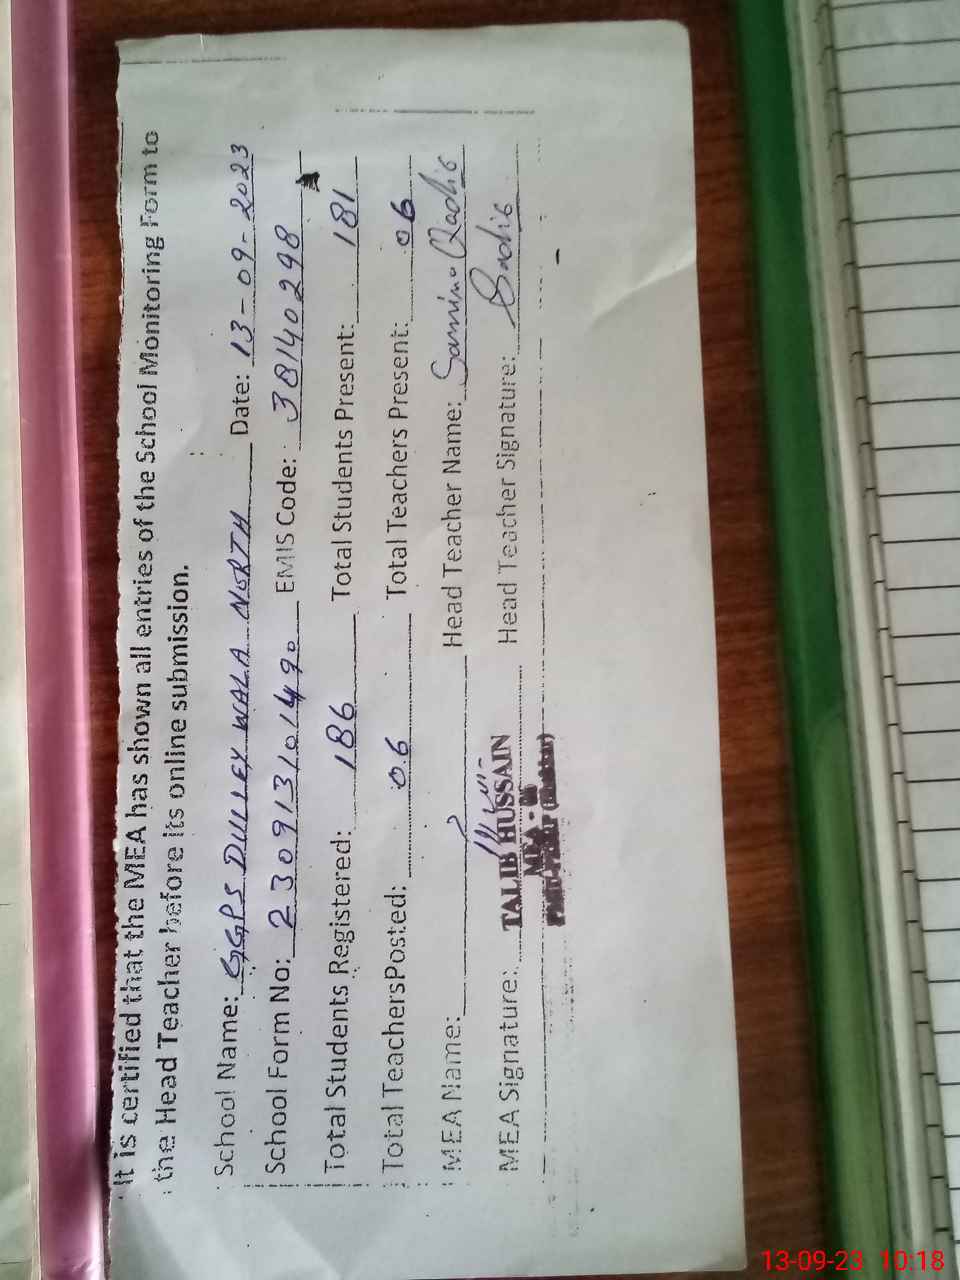 It is certified that the MEA has shown all entries of the School Monitoring Form to
the Head Teacher before its online submission.
School Name: GGPS DULLEY WALA NORTH Date: 13-09-2023
School Form No: 230913101490 EMIS Code: 38140298
Total Students Registered: 186 Total Students Present: 181
Total TeachersPosted: 06 Total Teachers Present: 06
MEA Name: Head Teacher Name: Samina Qadis
MEA Signature: Head Teacher Signature:
TALIB HUSSAIN
MEA -
13-09-23 10:18